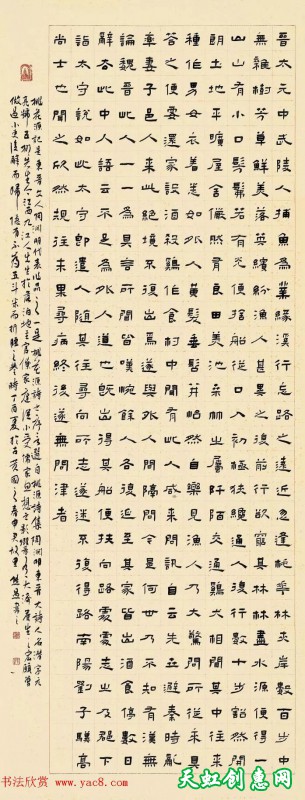 晉太元中武陵人捕魚為業緣溪行忘路之遠近忽逢桃華林夾岸數百步中
無雜樹芳草鮮美落英繽紛漁人甚異之復前行欲窮其林林盡水源便得一
山山有小口髣髴若有光便捨船從口入初極狹纔通人復行數十步豁然開
朗土地平曠屋舍儼然有良田美池桑竹之屬阡陌交通雞犬相聞其中往來
種作男女衣著悉如外人黃髮垂髫並怡然自樂見漁人乃大驚問所從來具
答之便要還家設酒殺雞作食村中聞有此人咸來問訊自云先世避秦時亂
率妻子邑人來此絕境不復出焉遂與外人間隔問今是何世乃不知有漢無
論魏晉此人一一為具言所聞皆歎惋餘人各復延至其家皆出酒食停數日
辭去此中人語云不足為外人道也既出得其船便扶向路處處誌之及郡下
詣太守說如此太守即遣人隨其往尋向所誌遂迷不復得路南陽劉子驥高
尚士也聞之欣然規往未果尋病終後遂無問津者
桃花源記是東晉文人陶淵明代表作品之一
书法欣赏 www.yac8.com
天虹创惠网